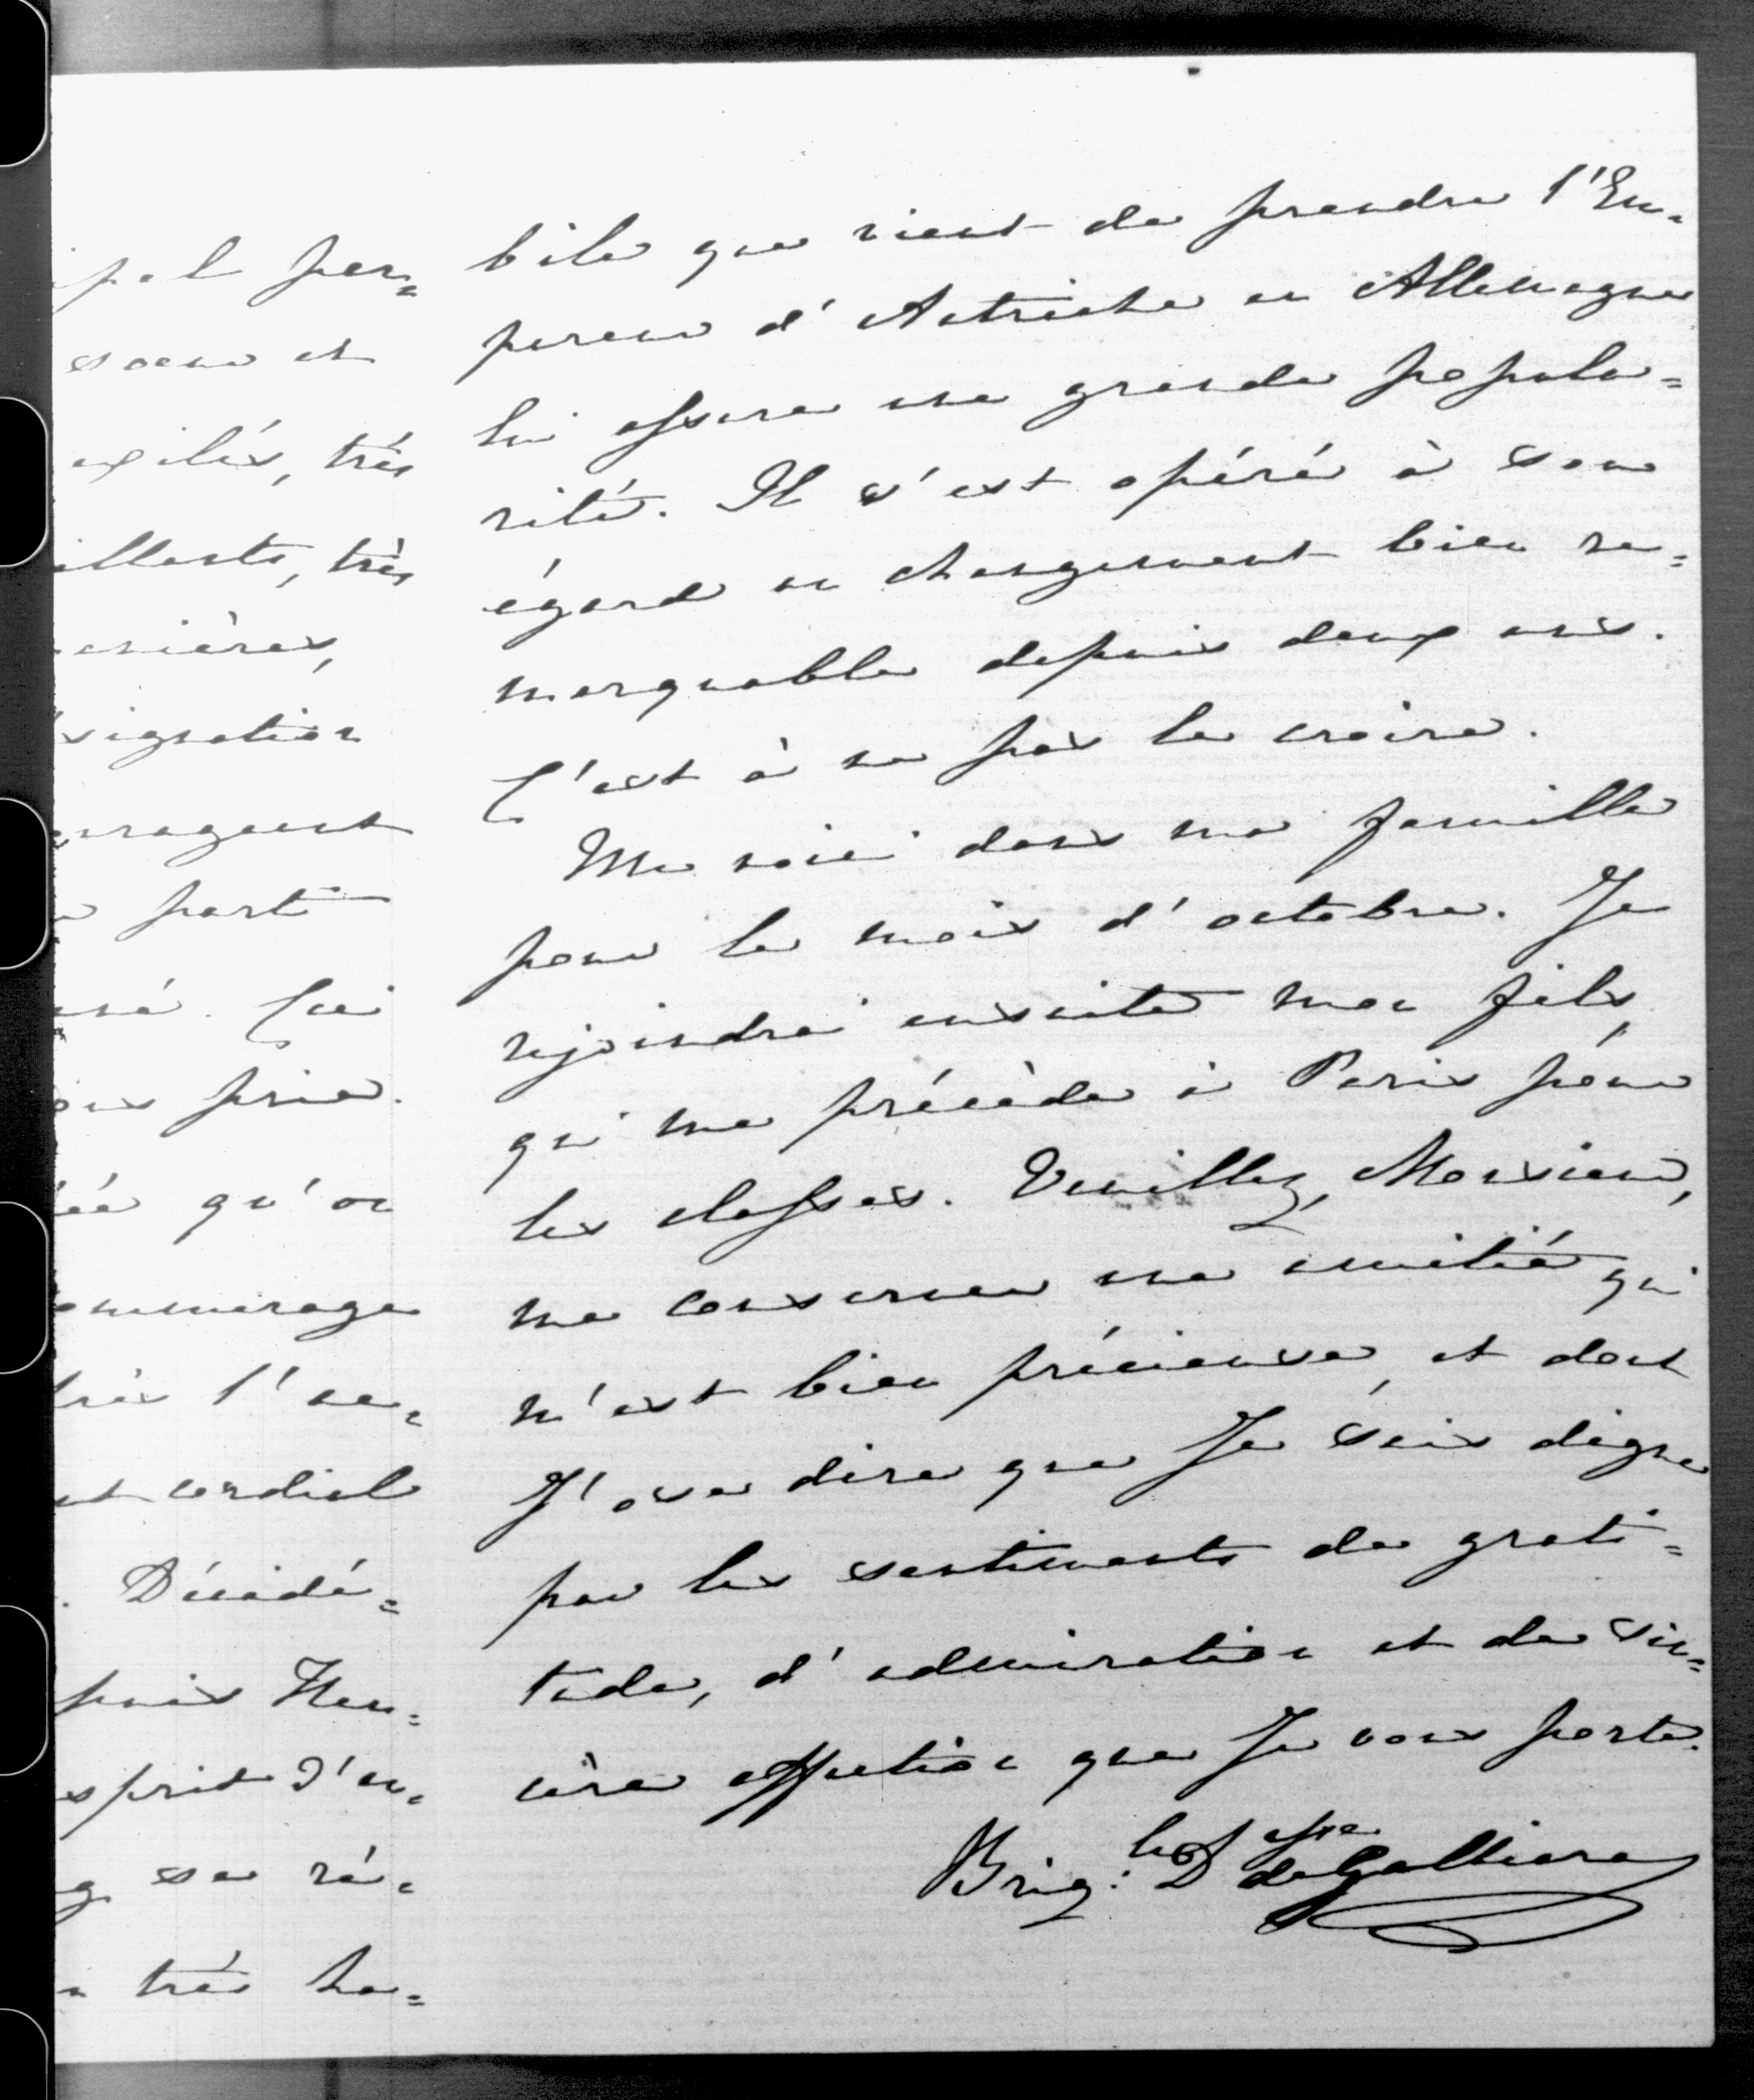 ipal per=
soeur et
exilés, très
illants, très
anières,
signation
uragent
parti
Ceci
ous prie.
ée qu'on
ommérage
très l'ac=
et cordial
. Décidé=
puis Hen=
sprit d'en=
g sa ré=
très ha=
bile que vient de prendre l'Em=
pereur d'Autriche en Allemagne
lui assure une grande popula=
rité. Il s'est opéré à son
égard un changement bien re=
marquable depuis deux ans.
C'est à ne pas le croire.
Me voici dans ma famille
pour le mois d'octobre. Je
rejoindrai ensuite mon fils,
qui me précède à Paris pour
les classes. Veuillez, Monsieur,
me conserver une amitié qui
m'est bien précieuse, et dont
J'ose dire que Je suis digne
par les sentiments de grati=
tude, d'admiration et de sin=
cère affection que Je vous porte.
Brig: la D esse de Galliera